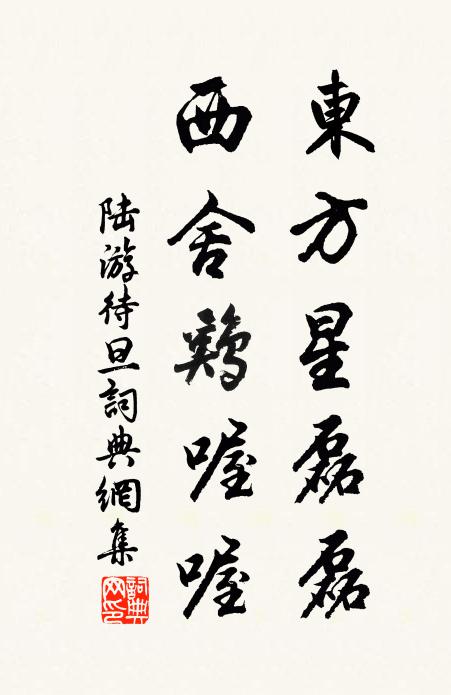 東方星磊磊
西舍鷄喔喔
陸游待旦詞典網集
詞典网印